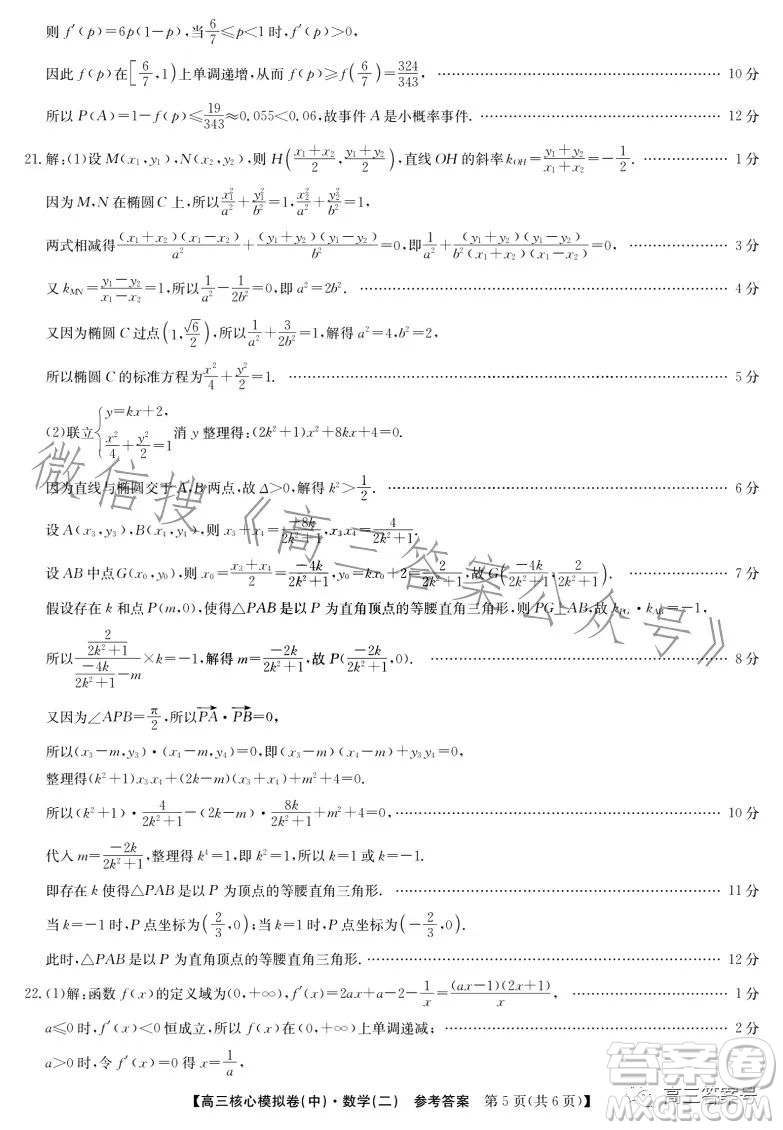 则 f′(p)=6p(1-p),当6/7≤p<1时,f′(p)>0,
因此 f(p)在[6/7,1)上单调递增,从而 f(p)≥f(6/7)=324/343, …… 10分
所以 P(A)=1-f(p)≤19/343≈0.055<0.06,故事件A是小概率事件. …… 12分
21.解:(1)设M(x₁,y₁),N(x₂,y₂),则 H((x₁+x₂)/2,(y₁+y₂)/2),直线OH的斜率k_OH=(y₁+y₂)/(x₁+x₂)=-1/2. …… 1分
因为M,N在椭圆C上,所以x₁²/a²+y₁²/b²=1,x₂²/a²+y₂²/b²=1,
两式相减得(x₁+x₂)(x₁-x₂)/a²+(y₁+y₂)(y₁-y₂)/b²=0,即1/a²+(y₁+y₂)(y₁-y₂)/(b²(x₁+x₂)(x₁-x₂))=0, …… 3分
又k_MN=(y₁-y₂)/(x₁-x₂)=1,所以1/a²-1/(2b²)=0,即a²=2b². …… 4分
又因为椭圆C过点(1,√6/2),所以1/a²+3/(2b²)=1,解得a²=4,b²=2,
所以椭圆C的标准方程为x²/4+y²/2=1. …… 5分
(2)联立{y=kx+2, x²/4+y²/2=1 消y整理得:(2k²+1)x²+8kx+4=0.
因为直线与椭圆交于A,B两点,故Δ>0,解得k²>1/2. …… 6分
设A(x₃,y₃),B(x₄,y₄),则x₃+x₄=-8k/(2k²+1),x₃x₄=4/(2k²+1).
设AB中点G(x₀,y₀),则x₀=(x₃+x₄)/2=-4k/(2k²+1),y₀=kx₀+2=2/(2k²+1),故G(-4k/(2k²+1),2/(2k²+1)). …… 7分
假设存在k和点P(m,0),使得△PAB是以P为直角顶点的等腰直角三角形,则PG⊥AB,故k_PG·k_AB=-1,
所以(2/(2k²+1))/(-4k/(2k²+1)-m)×k=-1,解得m=-2k/(2k²+1),故P(-2k/(2k²+1),0). …… 8分
又因为∠APB=π/2,所以PA→·PB→=0,
所以(x₃-m,y₃)·(x₄-m,y₄)=0,即(x₃-m)(x₄-m)+y₃y₄=0.
整理得(k²+1)x₃x₄+(2k-m)(x₃+x₄)+m²+4=0.
所以(k²+1)·4/(2k²+1)-(2k-m)·8k/(2k²+1)+m²+4=0, …… 10分
代入m=-2k/(2k²+1),整理得k⁴=1,即k²=1,所以k=1或k=-1.
即存在k使得△PAB是以P为顶点的等腰直角三角形. …… 11分
当k=-1时,P点坐标为(2/3,0);当k=1时,P点坐标为(-2/3,0).
此时,△PAB是以P为直角顶点的等腰直角三角形. …… 12分
22.(1)解:函数f(x)的定义域为(0,+∞),f′(x)=2ax+a-2-1/x=(ax-1)(2x+1)/x, …… 1分
a≤0时,f′(x)<0恒成立,所以f(x)在(0,+∞)上单调递减; …… 2分
a>0时,令f′(x)=0得x=1/a,
【高三核心模拟卷(中)·数学(二) 参考答案 第5页(共6页)】
微信搜《高三答案公众号》
答案圈
高三答案号
MXQE.COM